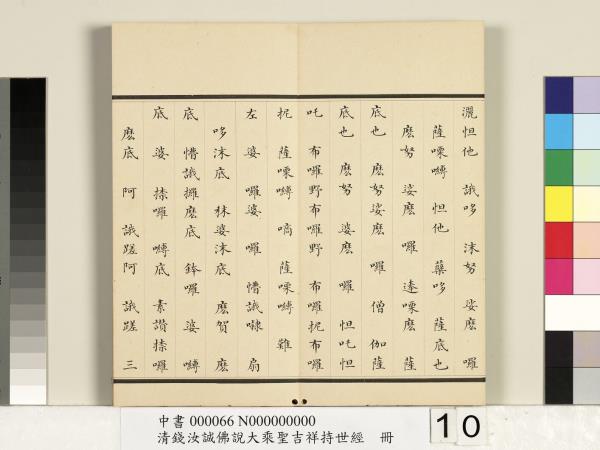 灑怛他 誐哆 沫努 娑麽 囉
薩嚟嚩 怛他 蘖哆 薩底也
麽努 娑麽 囉 達嚟麽 薩
底也 麽努娑麽 囉 僧 伽薩
底也 麽努 娑麽 囉 怛吒怛
吒 布囉野布囉野 布囉抳布囉
抳 薩嚟嚩 嗬薩嚟嚩 難
左 婆 囉婆 囉 懵誐㘑 扇
哆沫底 秫婆沫底 麽賀 麽
底 懵誐攞麽底 鉢囉 婆 嚩
底 婆 捺囉 嚩底 素讚捺囉
麽底 阿 誐蹉阿 誐蹉 三
中書 000066 N000000000
清錢汝誠佛說大乘聖吉祥持世經 冊
10